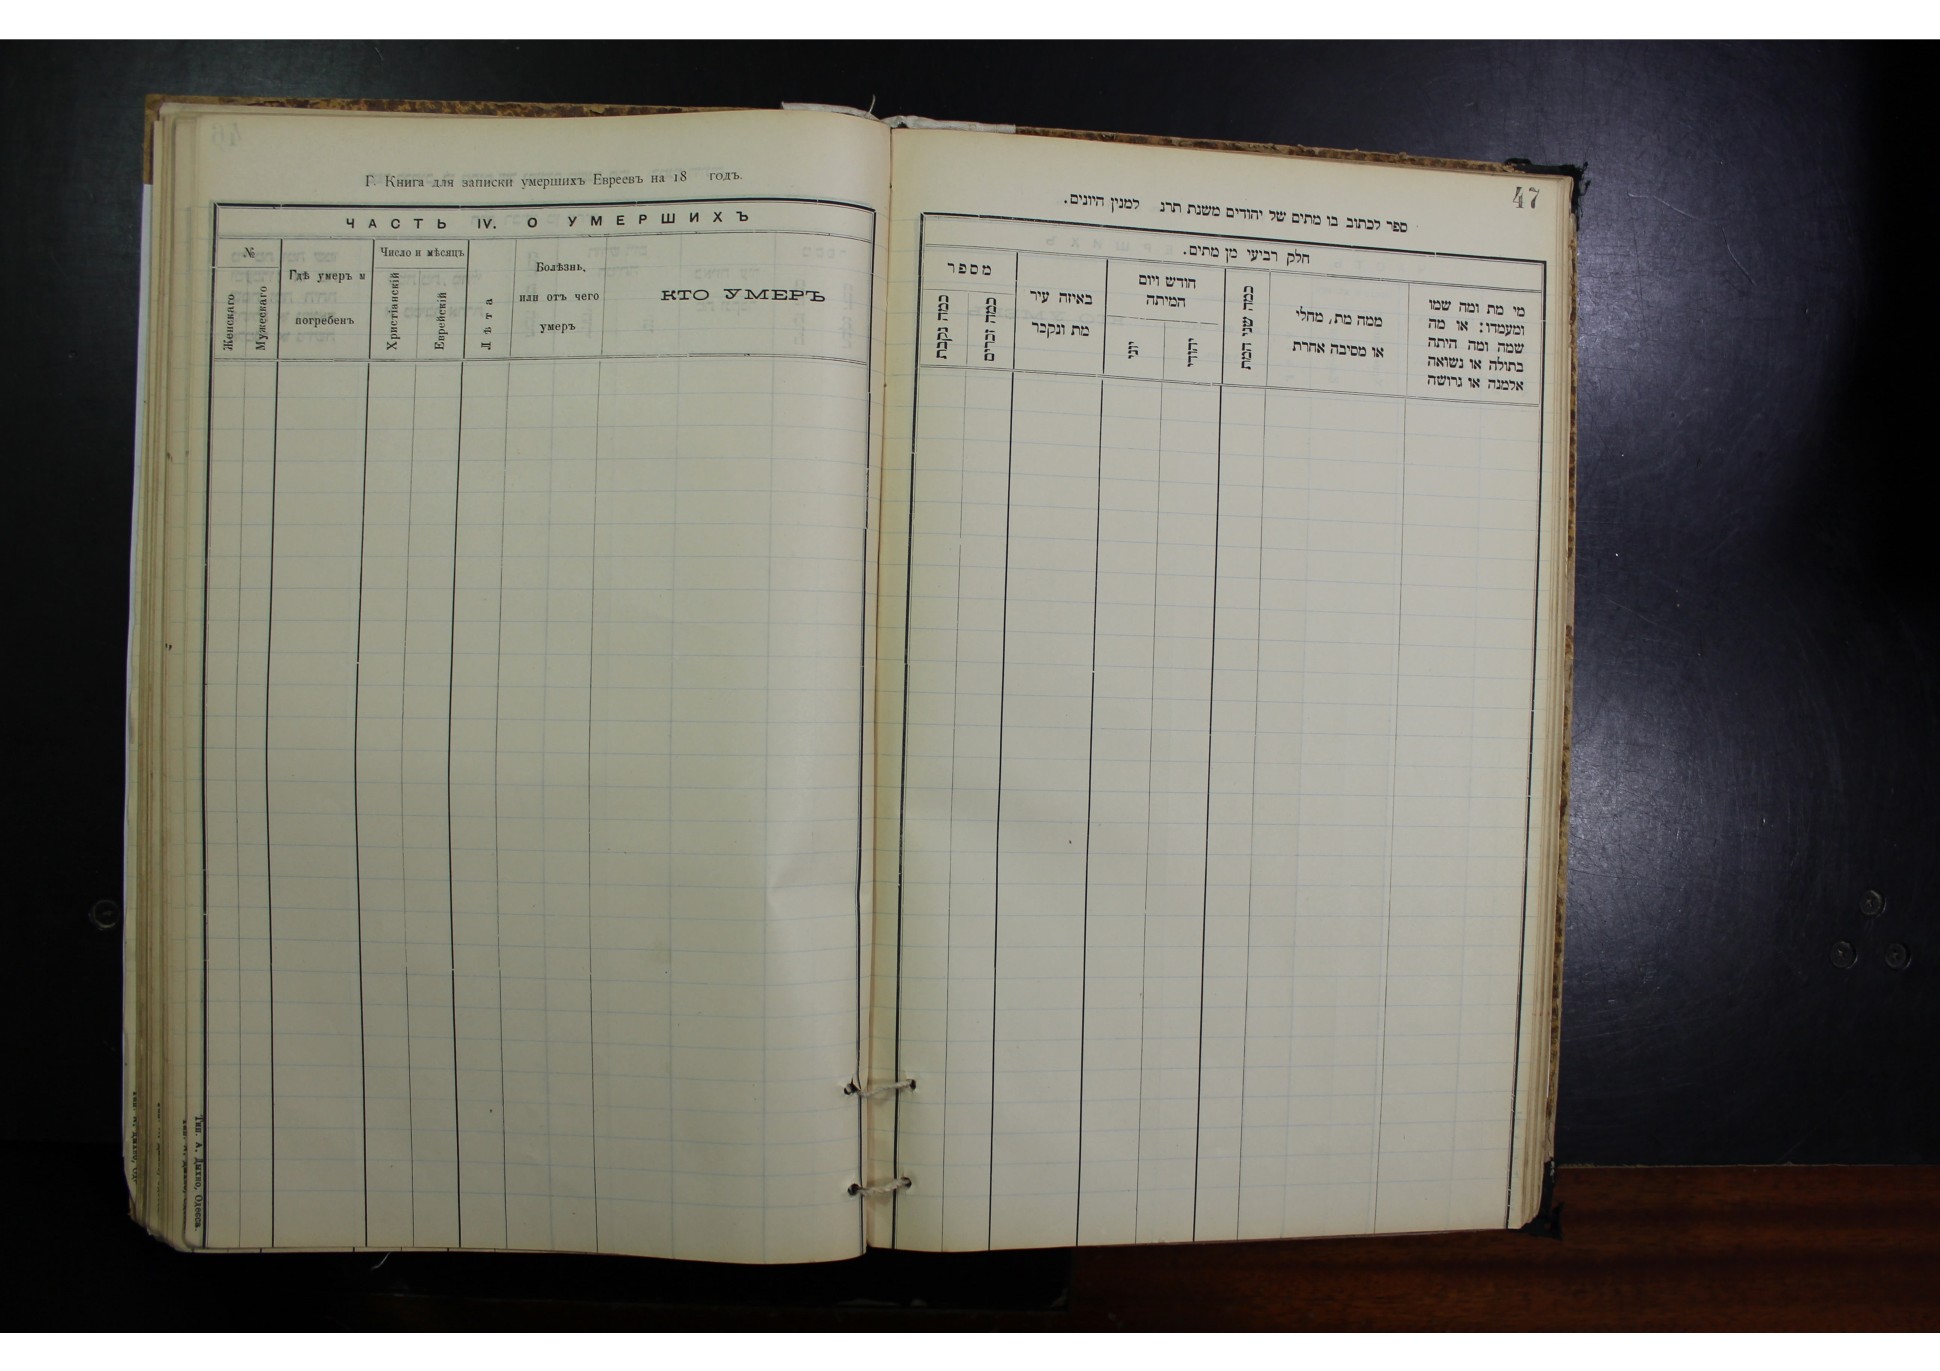 Г. Книга для записки умершихъ Евреевъ на 18 годъ.
ЧАСТЬ IV. О УМЕРШИХЪ
№
Женскаго
Мужескаго
Гдѣ умеръ и
погребенъ
Число и мѣсяцъ
Христіанскій
Еврейскій
Лѣта
Болѣзнь,
или отъ чего
умеръ
КТО УМЕРЪ
Тип. А. Дыхно, Одесса.
47
ספר לכתוב בו מתים של יהודים משנת תרנ למנין היונים.
חלק רביעי מן מתים.
מספר
כמה נקבת
כמה זכרים
באיזה עיר
מת ונקבר
חודש ויום
המיתה
יוני
יהודי
כמה שני המת
ממה מת, מחלי
או מסיבה אחרת
מי מת ומה שמו
ומעמדו: או מה
שמה ומה היתה
בתולה או נשואה
אלמנה או גרושה